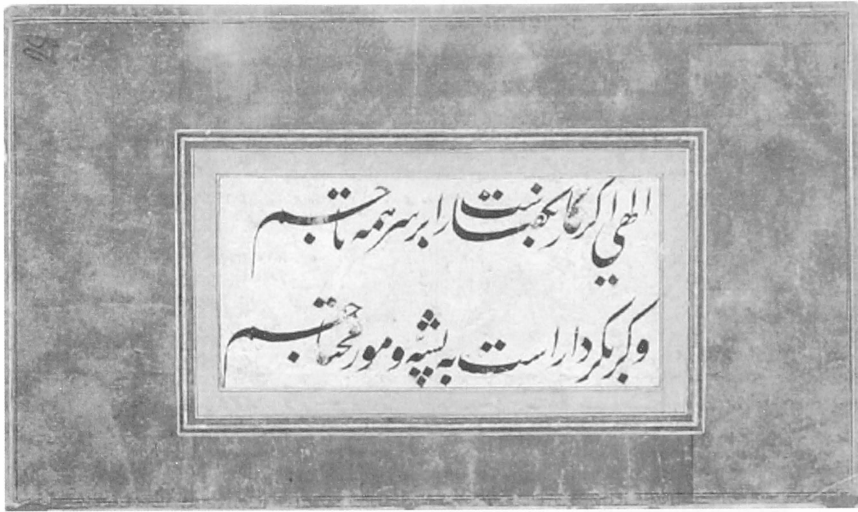 الهی اگر کار بگفتارست بر سر همه تاجم
و گر بکردار است به پشه و مور محتاجم